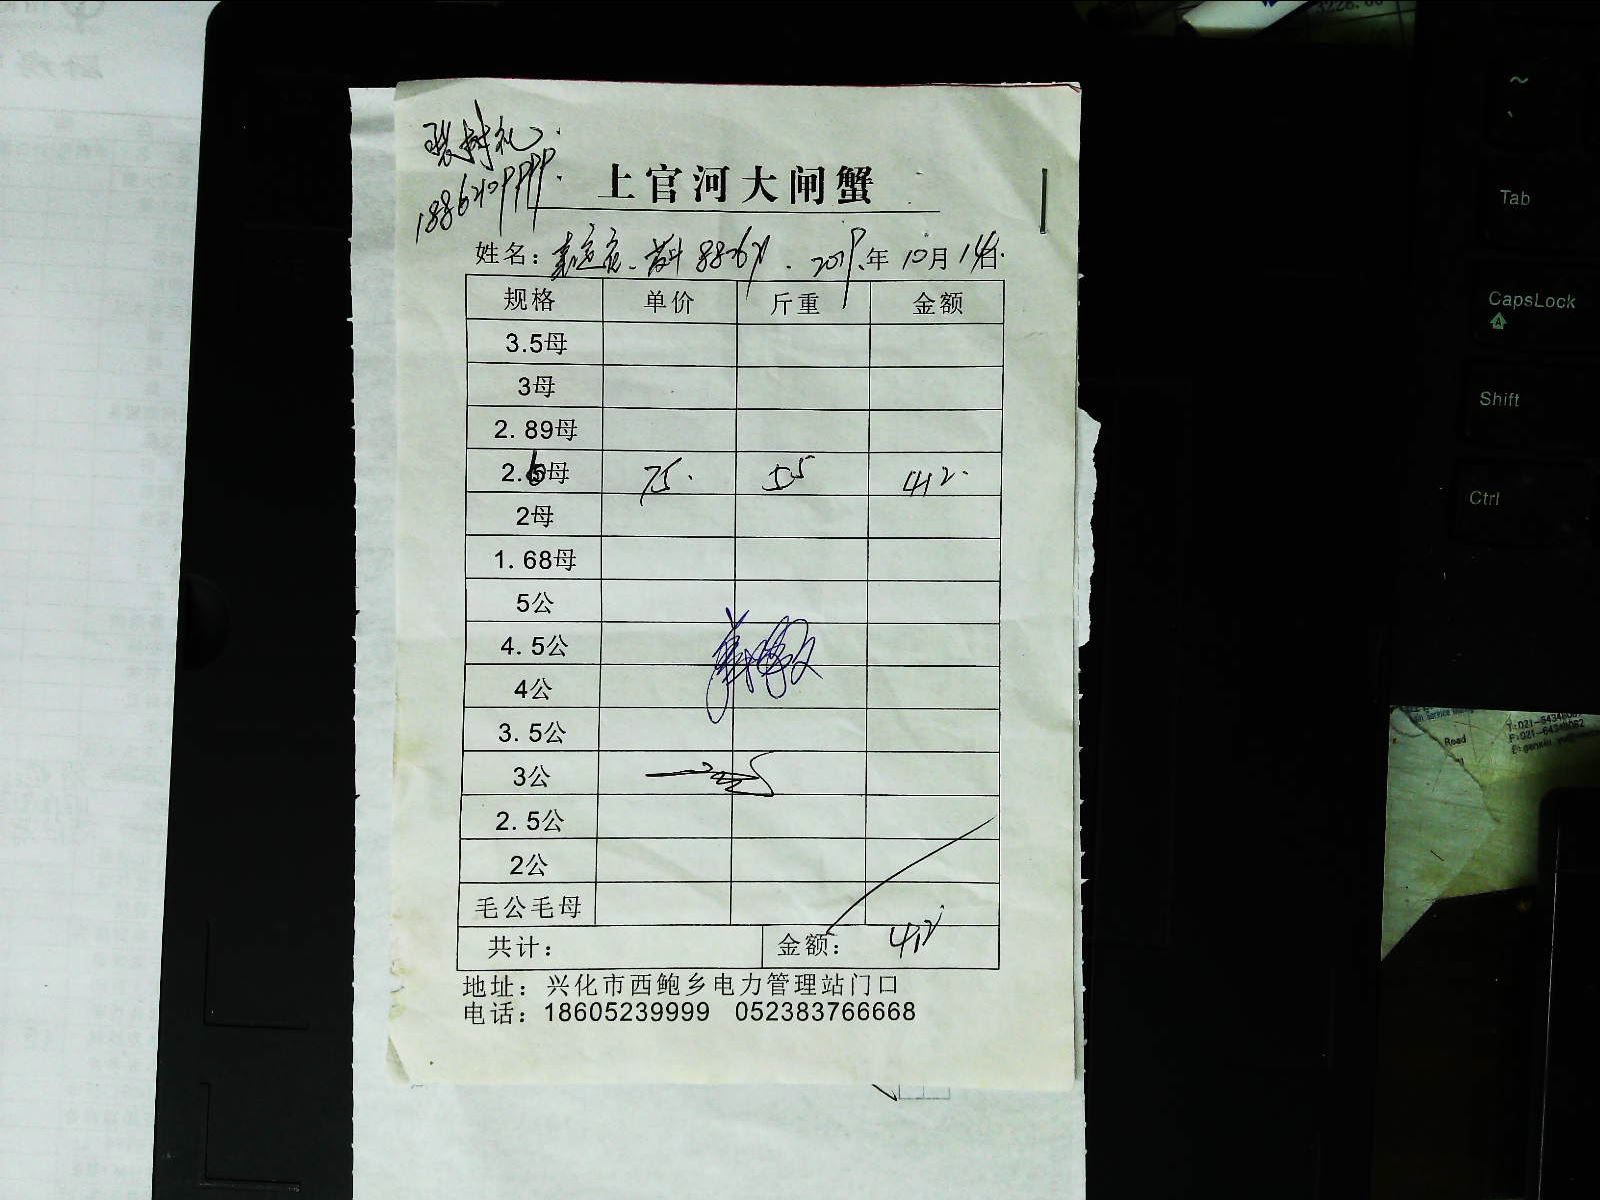 上官河大闸蟹
姓名： 2019年10月14日
规格 单价 斤重 金额
3.5母
3母
2.89母
2.6母 75. 55 412
2母
1.68母
5公
4.5公
4公
3.5公
3公
2.5公
2公
毛公毛母
共计： 金额： 412
地址：兴化市西鲍乡电力管理站门口
电话：18605239999 052383766668
~
Tab
CapsLock
Shift
Ctrl
Read